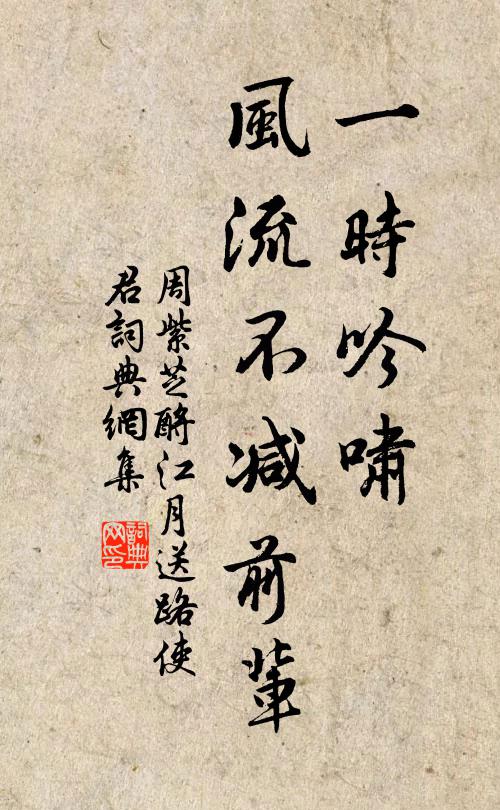 一時吟嘯
風流不減前輩
周紫芝酹江月送路使
君詞典網集
詞典
网印